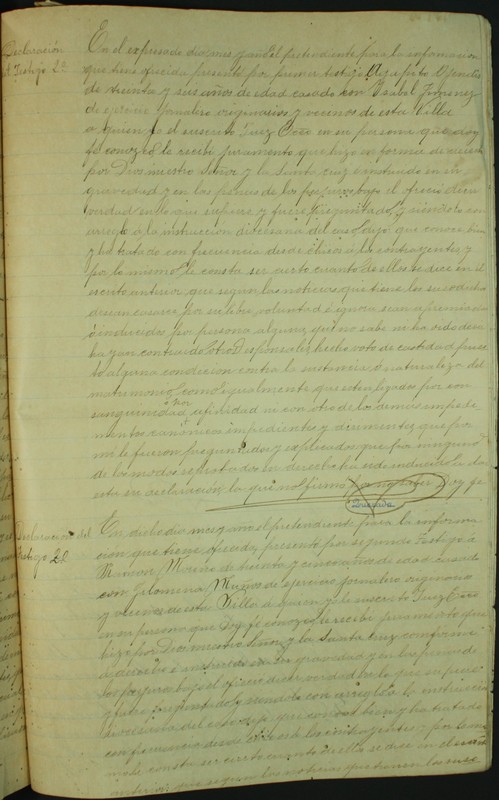 Declaración
Testigo 2º
En el expresado dia, mes y año el pretendiente para la informacion
que tiene ofrecida presentó por primer testigo á
de treinta y seis años de edad casado con Ysabel Jimenez
de ejercicio jornalero originarios y vecinos de esta Villa
a quien yo el suscrito Juez Ecco en su persona que doy
fé conozco le recibi juramento que hizo en forma de
por Dios nuestro Señor y la Santa Cruz en
gravedad y en las penas de los perjuros bajo el ofreció decir
verdad en lo que supiere y fuere preguntado, y siendolo con
arreglo á la instruccion diocesana del caso dijo: que conoce bien
y ha tratado con frecuencia desde á los contrayentes y
por lo mismo le consta ser cierto cuanto de ellos se dice en el
escrito anterior, que segun las noticias que tiene los susodichos
desean casarse por su libre voluntad é ignora sean apremiados
ó inducidos por persona alguna, que no sabe ni ha oido decir
hayan contraido otros Desponsales, hecho voto de castidad,
to alguna condicion contra la sustancia ó naturaleza del
matrimonio, como igualmente que esten ligados por con
sanguinidad, afinidad ni con otro de los demas impedi
mentos canónicos impedientes y dirimentes que por
me le fueron preguntados y explicados, que por ninguno
de los modos reprobados por derecho ha sido inducido á dar
esta su declaracion, la que no firmó por no saber Doy fé
Quezada
Declaracion del
Testigo 2º
En dicho dia mes y año el pretendiente para la informa
cion que tiene ofrecida, presentó por segundo testigo á
de treinta y cinco años de edad casado
con Filomena Muños de ejercicio jornalero originario
y vecinos de esta Villa á quien yo el suscrito Juez Ecco
en su persona que Doy fé conozco le recibi juramento que
hizo por Dios nuestro Señor y la Santa Cruz conforme
de derecho é en su gravedad y en las penas de
los perjuros bajo el ofreció decir verdad en lo que supiere
y fuere preguntado, y siendolo con arreglo á la instruccion
diocesana del caso dijo: que conoce bien y ha tratado
con frecuencia desde á los contrayentes y por lo mis
mo le consta ser cierto cuanto de ellos se dice en el escrito
anterior: que segun las noticias que tiene los suso